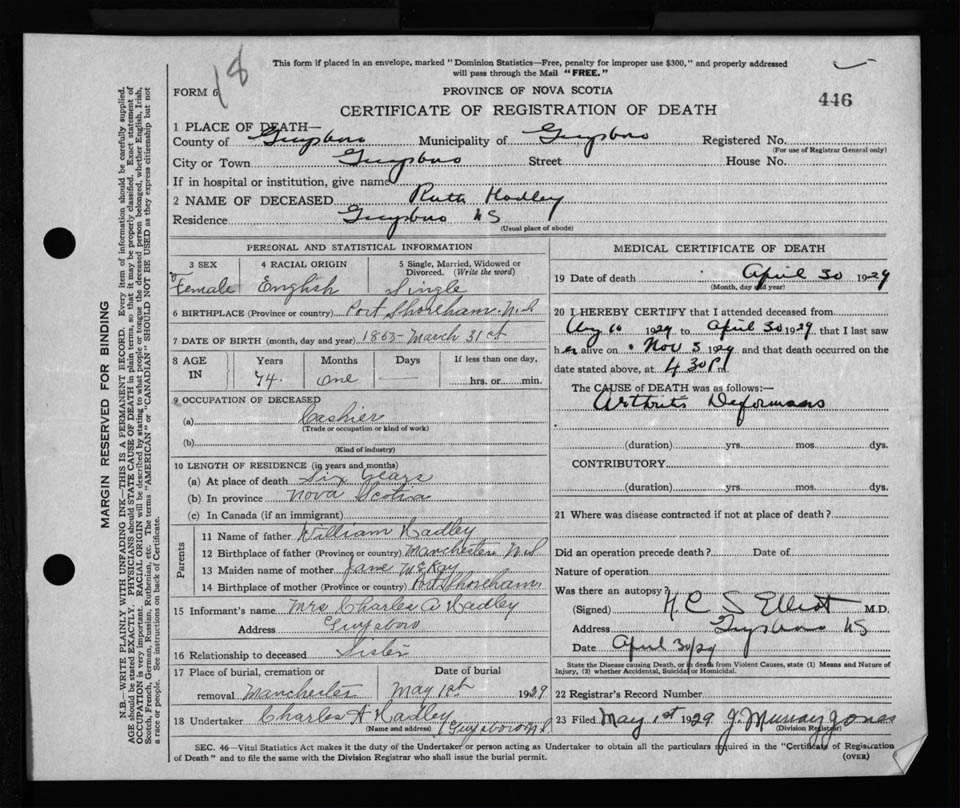 18
This form if placed in an envelope, marked "Dominion Statistics—Free, penalty for improper use $300," and properly addressed
will pass through the Mail "FREE."
FORM 6
PROVINCE OF NOVA SCOTIA
446
CERTIFICATE OF REGISTRATION OF DEATH
1 PLACE OF DEATH—
County of Guysboro Municipality of Guysboro Registered No.
(For use of Registrar General only)
City or Town Guysboro Street House No.
If in hospital or institution, give name
2 NAME OF DECEASED Ruth Hadley
Residence Guysboro NS
(Usual place of abode)
MARGIN RESERVED FOR BINDING
N.B.—WRITE PLAINLY WITH UNFADING INK—THIS IS A PERMANENT RECORD. Every item of information should be carefully supplied.
AGE should be stated EXACTLY. PHYSICIANS should STATE CAUSE OF DEATH in plain terms, so that it may be properly classified. Exact statement of
OCCUPATION is very important. RACIAL ORIGIN will be described by stating to what people or tongue the deceased person belonged, whether English, Irish,
Scotch, French, German, Russian, Ruthenian, etc. The terms "AMERICAN" or "CANADIAN" SHOULD NOT BE USED as they express citizenship but not
a race or people. See instructions on back of Certificate.
PERSONAL AND STATISTICAL INFORMATION
3 SEX
Female
4 RACIAL ORIGIN
English
5 Single, Married, Widowed or
Divorced. (Write the word)
Single
6 BIRTHPLACE (Province or country) Port Shoreham N.S
7 DATE OF BIRTH (month, day and year) March 31st
8 AGE
IN
Years
74
Months
one
Days
—
If less than one day,
hrs. or min.
9 OCCUPATION OF DECEASED
(a) Cashier
(Trade or occupation or kind of work)
(b)
(Kind of industry)
10 LENGTH OF RESIDENCE (in years and months)
(a) At place of death Six Years
(b) In province Nova Scotia
(c) In Canada (if an immigrant)
Parents
11 Name of father William Hadley
12 Birthplace of father (Province or country) Manchester N.S
13 Maiden name of mother Jane McKay
14 Birthplace of mother (Province or country) Port Shoreham
15 Informant's name Mrs Charles A Hadley
Address Guysboro
16 Relationship to deceased Sister
17 Place of burial, cremation or
removal Manchester
Date of burial
May 1st 1929
18 Undertaker Charles A Hadley
(Name and address) Guysboro N.S
MEDICAL CERTIFICATE OF DEATH
19 Date of death April 30 1929
(Month, day and year)
20 I HEREBY CERTIFY that I attended deceased from
Aug 1929 to April 30 1929 that I last saw
her alive on Nov 1929 and that death occurred on
date stated above, at 4 30 P m.
The CAUSE OF DEATH was as follows:—
Arthritis Deformans
(duration) yrs. mos. dys.
CONTRIBUTORY
(duration) yrs. mos. dys.
21 Where was disease contracted if not at place of death?
Did an operation precede death? Date of
Nature of operation
Was there an autopsy?
(Signed) H C S Elliot M.D.
Address Guysboro NS
Date April 30/29
State the Disease causing Death, or in death from Violent Causes, state (1) Means and Nature of
Injury, (2) whether Accidental, Suicidal or Homicidal.
22 Registrar's Record Number
23 Filed May 1st 1929 J. Murray Jones
(Division Registrar)
SEC. 46—Vital Statistics Act makes it the duty of the Undertaker or person acting as Undertaker to obtain all the particulars required in the "Certificate of Registration
of Death" and to file the same with the Division Registrar who shall issue the burial permit.
(OVER)